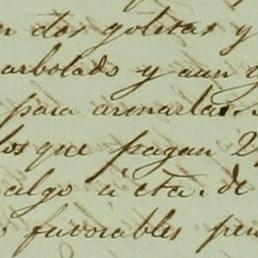 dos goletas y
arbolads y aun
para armarlas.
los que pagan 2
algo á cta. de
favorables per